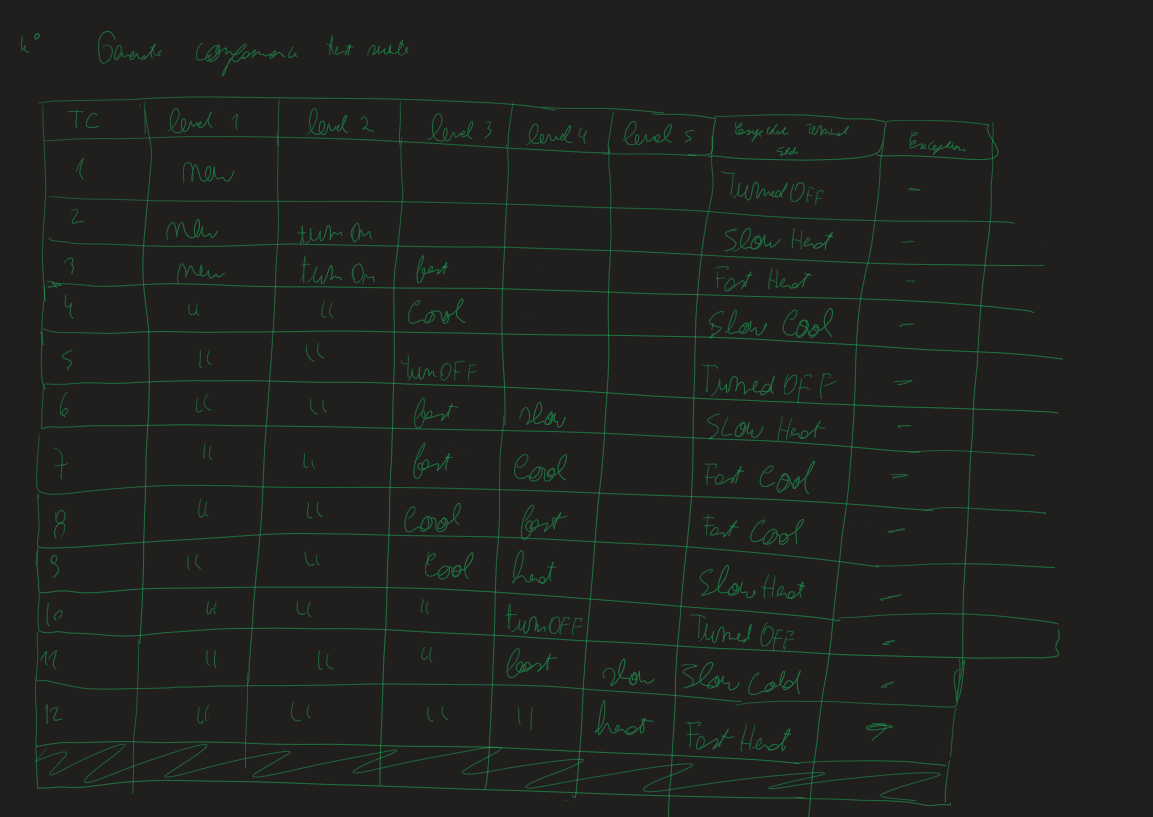 Generate conformance test suite
TC level 1 level 2 level 3 level 4 level 5 Expected Terminal State Exception
1 new Turned OFF -
2 new turn On Slow Heat -
3 new turn On fast Fast Heat -
4 " " Cool Slow Cool -
5 " " turn OFF Turned OFF -
6 " " fast slow Slow Heat -
7 " " fast Cool Fast Cool -
8 " " Cool fast Fast Cool -
9 " " Cool heat Slow Heat -
10 " " " turn OFF Turned OFF -
11 " " " boost slow Slow Cold -
12 " " " " heat Fast Heat -